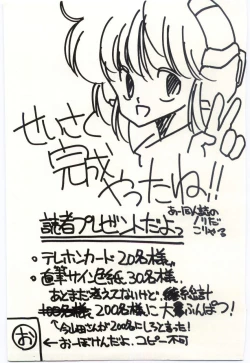 せいさく
完成
やったね!!
あー同人誌の
ノリだ
こりゃる
読者プレゼントだよっ
・テレホンカード 20名様、
・直筆サイン色紙 30名様、
あとまだ考えてないけど、総計
200名様に 大量ふんぱつ!
今山田さんが200名にしろと言った!
お
←おーぼけんだよ、コピー不可